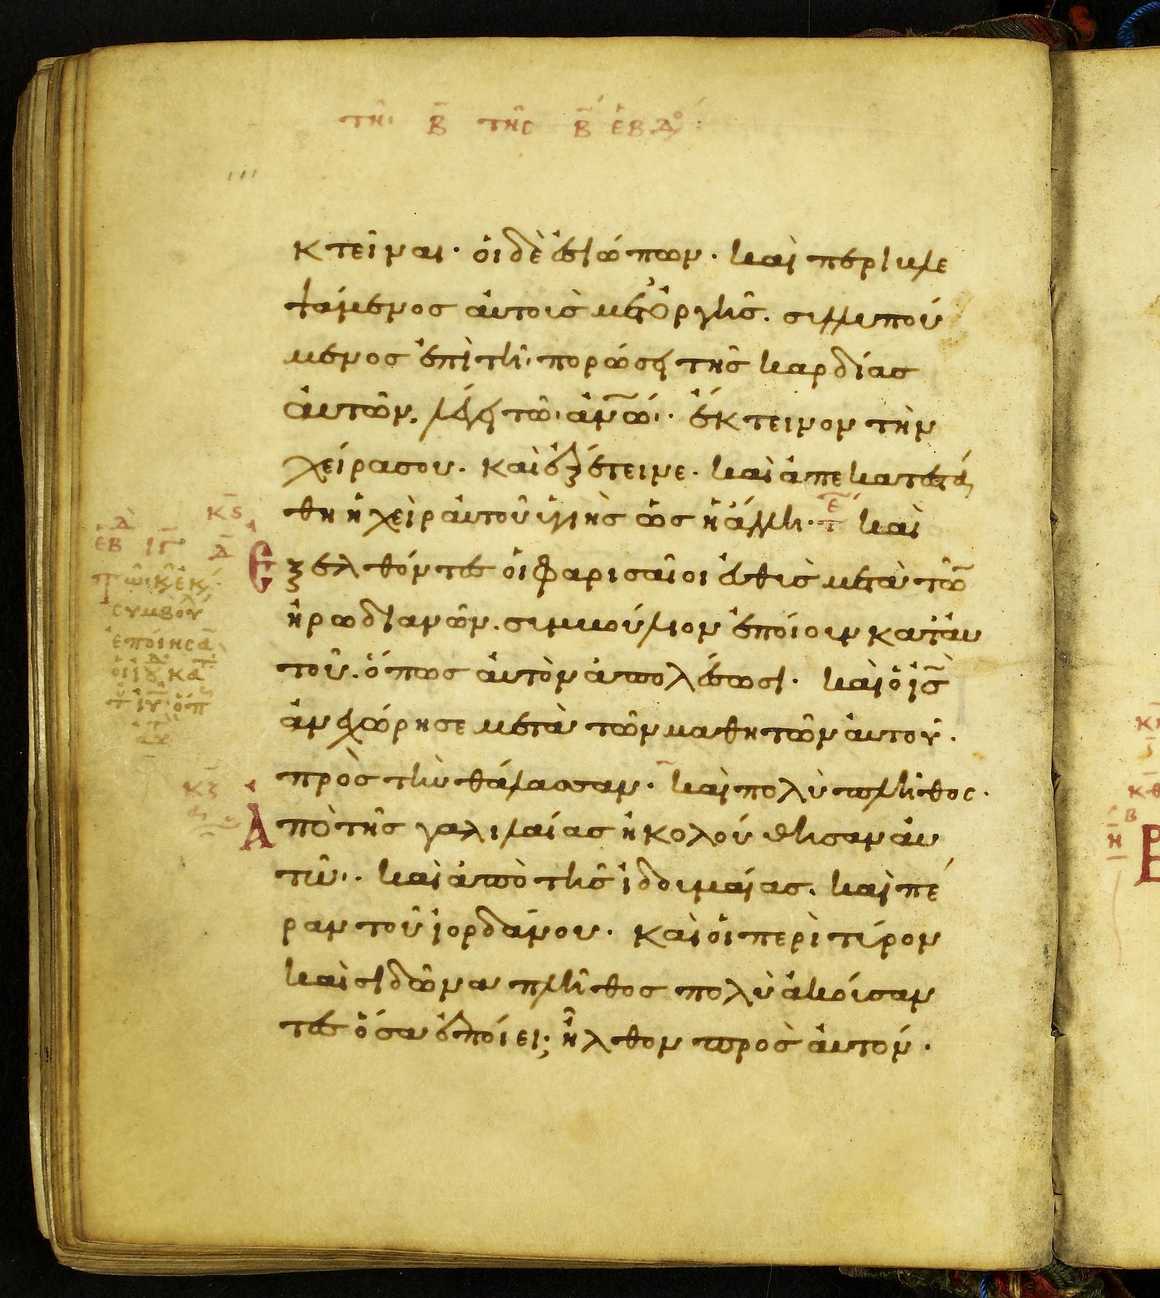 τῆ Β τῆς Β ἑβδο
κτεῖναι· οἱ δὲ ἐσιώπων· καὶ περιβλε
ψάμενος αὐτοὺς μετ ὀργῆς. συλλυπού
μενος ἐπὶ τῆ πορώσει τῆς καρδίας
αὐτῶν. λέγει τῶ ἀνω· ἔκτεινον τὴν
χείρα σου. καὶ ἐξέτεινε. καὶ ἀπεκατεστά
θη ἡ χεὶρ αὐτοῦ ὑγιὴς ὡς ἡ ἄλλη· τε καὶ
Κς
Δ
Εξελθόντες οἱ φαρισαῖοι εὐθὺς μετὰ τῶν
ἡρωδιανῶν. συμβούλιον ἐποίουν κατ αὐ
τοῦ. ὅπως αὐτὸν ἀπολέσωσι· καὶ ὁ ις
ἀνεχώρησε μετὰ τῶν μαθητῶν αὐτοῦ.
πρὸς τὴν θάλασσαν. καὶ πολὺ πλῆθος.
κζ
Ἀπὸ τῆς γαλιλαίας ἠκολούθησαν αὐ
τῶ. καὶ ἀπὸ τῆς ἰδουμαίας. καὶ πέ
ραν τοῦ ἰορδάνου. καὶ οἱ περὶ τύρον
καὶ σιδῶνα πλῆθος πολὺ ἀκούσαν
τες ὅσα ἐποίει; ἦλθον πρὸς αὐτόν.